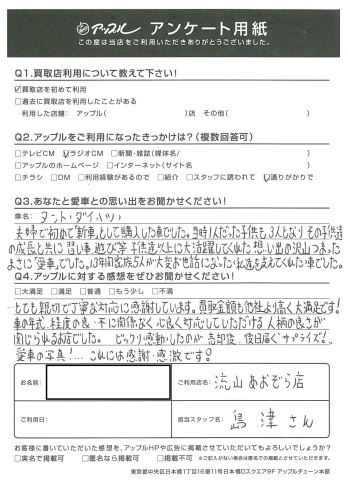 アップル アンケート用紙
この度は当店をご利用いただきありがとうございました。
Q1.買取店利用について教えて下さい!
☑買取店を初めて利用
□過去に買取店を利用したことがある
利用した店舗: アップル( )店 その他( )
Q2.アップルをご利用になったきっかけは?(複数回答可)
□テレビCM ☑ラジオCM □新聞・雑誌(媒体名/ )
□アップルのホームページ □インターネット(サイト名 )
□チラシ □DM □利用経験があるので □紹介 □スタッフに誘われて ☑通りがかりで
Q3.あなたと愛車との思い出をお聞かせください!
車名: タント・ダイハツ
夫婦で初めて「新車」として購入した車でした。当時1人だった子供も3人となり その子供達
の成長と共に 習い事、遊び等 子供達以上に大活躍してくれた 想い出の沢山つまった
まさに「愛車」でした。13年間家族5人が大変お世話になった・私達を支えてくれた車でした。
Q4.アップルに対する感想をぜひお聞かせください!
□大満足 □満足 □普通 □もう少し □不満
とても親切で丁寧な対応に感謝しています。買取金額も他社より高く大満足です!
車の年式、程度の良・不に関係なく 心良く対応していただける 人柄の良さが
感じられるお店でした。 ビックリ感動したのが 売却後、後日届くサプライズ!
愛車の写真!... これには感謝・感激です!
お名前:
ご利用店名: 流山あおぞら店
ご利用日:
担当スタッフ名: 島津さん
お客様に書いていただいた感想を、アップルHPや広告に掲載させていただいてもよろしいでしょうか?
□実名で掲載可 □匿名なら掲載可 □掲載不可 ※ご記入がない場合は匿名での掲載とさせていただきます。
東京都中央区日本橋1丁目16番11号日本橋Dスクエア9F アップルチェーン本部